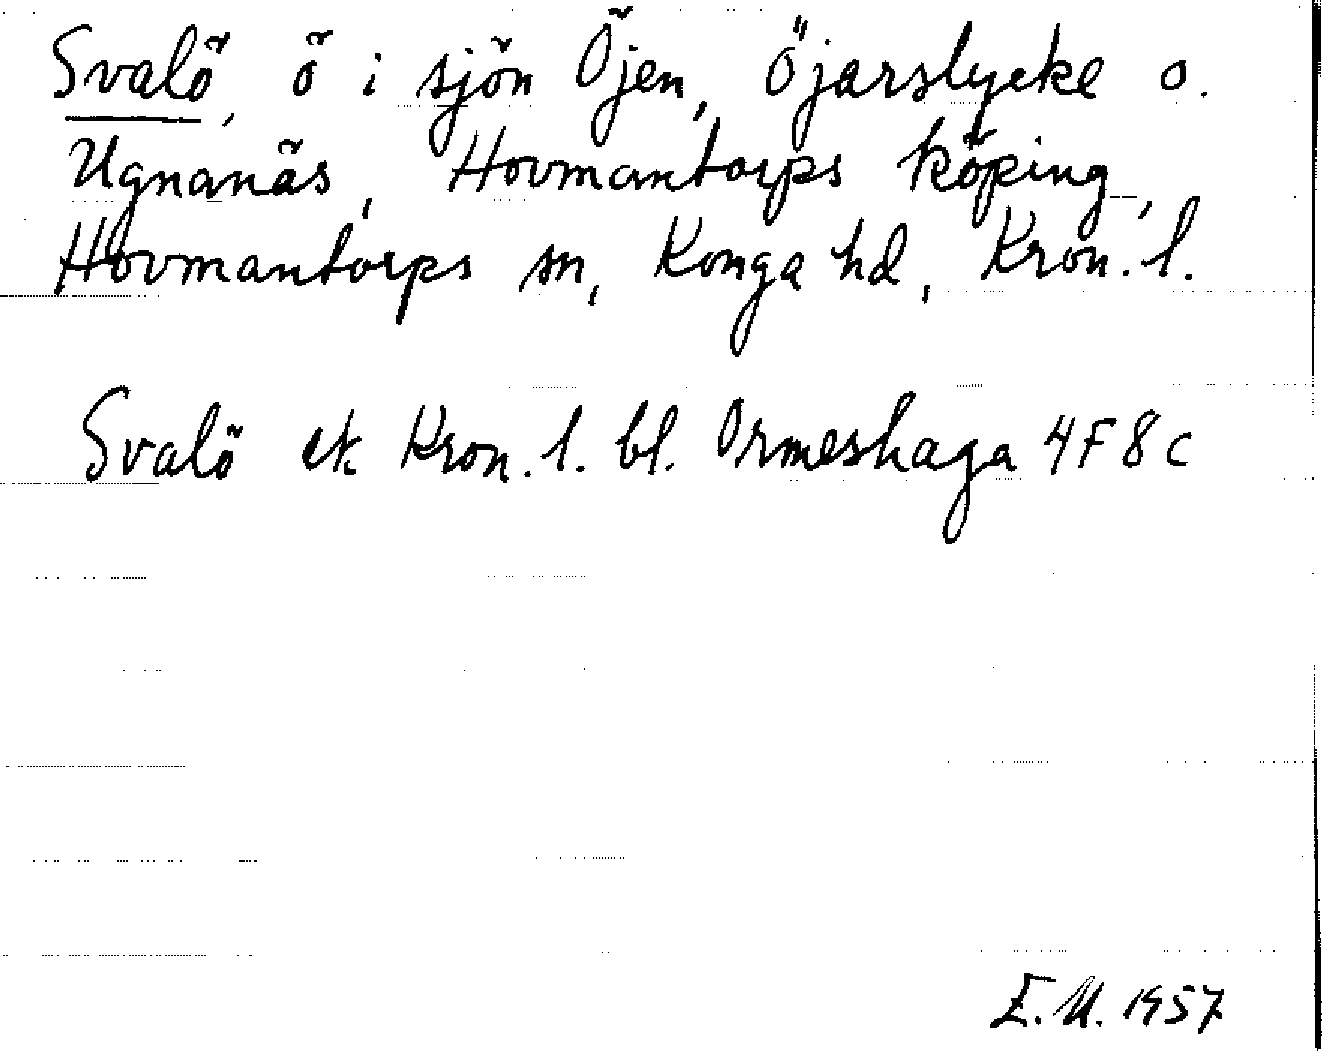 Svalö, ö i sjön Öjen, Öjarslycke o.
Ugnanäs, Hovmantorps köping,
Hovmantorps sn, Konga hd, Kron. l.
Svalö ek Kron. l. bl. Ormeshaga 4F8c
E.U. 1957